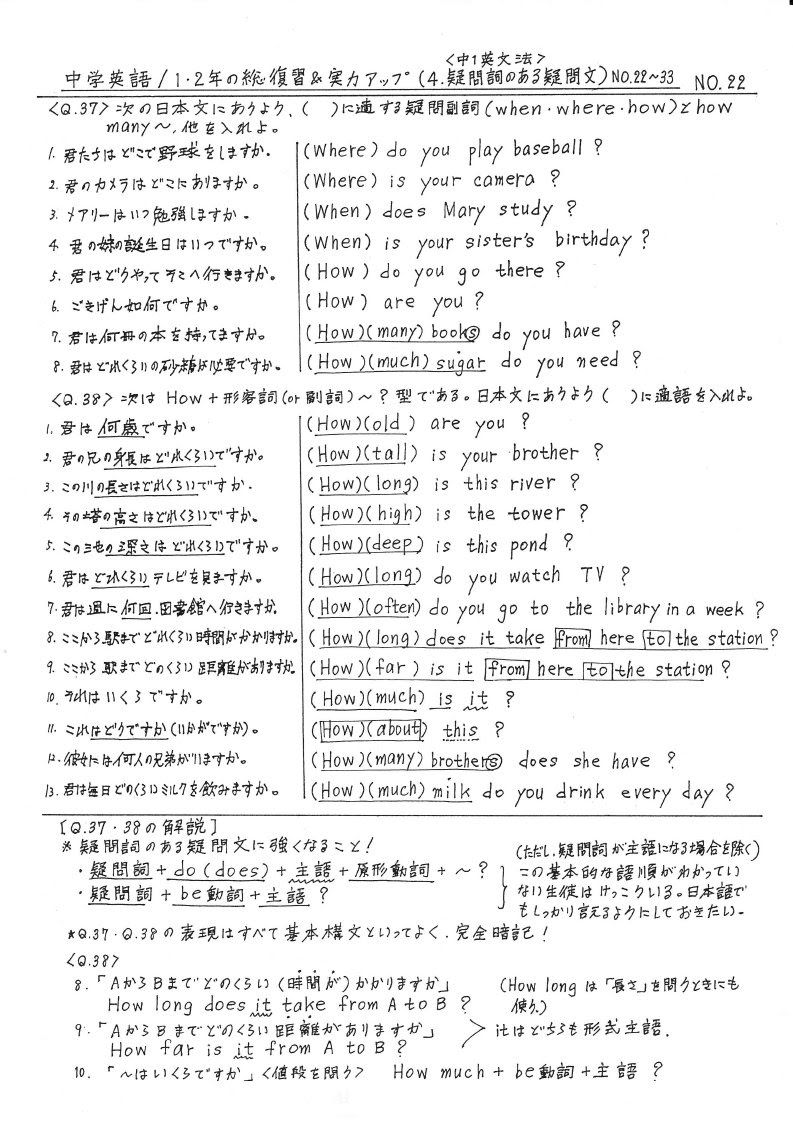 <中1英文法>
中学英語/1・2年の総復習&実力アップ(4.疑問詞のある疑問文)NO.22~33 NO.22
<Q.37>次の日本文にあうよう、( )に適する疑問副詞(when・where・how)とhow
many~、他を入れよ。
1. 君たちはどこで野球をしますか. (Where) do you play baseball ?
2. 君のカメラはどこにありますか。 (Where) is your camera ?
3. メアリーはいつ勉強しますか. (When) does Mary study ?
4. 君の妹の誕生日はいつですか。 (When) is your sister's birthday ?
5. 君はどうやってそこへ行きますか. (How) do you go there ?
6. ごきげん如何ですか。 (How) are you ?
7. 君は何冊の本を持ってますか. (How)(many) books do you have ?
8. 君はどれくらいの砂糖が必要ですか. (How)(much) sugar do you need ?
<Q.38>次は How+形容詞(or 副詞)~?型である。日本文にあうよう( )に適語を入れよ。
1. 君は何歳ですか。 (How)(old) are you ?
2. 君の兄の身長はどれくらいですか。 (How)(tall) is your brother ?
3. この川の長さはどれくらいですか. (How)(long) is this river ?
4. その塔の高さはどれくらいですか。 (How)(high) is the tower ?
5. この池の深さはどれくらいですか。 (How)(deep) is this pond ?
6. 君はどれくらいテレビを見ますか。 (How)(long) do you watch TV ?
7. 君は週に何回、図書館へ行きますか. (How)(often) do you go to the library in a week ?
8. ここから駅までどれくらい時間がかかりますか. (How)(long) does it take from here to the station ?
9. ここから駅までどのくらい距離がありますか. (How)(far) is it from here to the station ?
10. それはいくらですか。 (How)(much) is it ?
11. これはどうですか(いかがですか)。 (How)(about) this ?
12. 彼女には何人の兄弟がいますか。 (How)(many) brothers does she have ?
13. 君は毎日どのくらいミルクを飲みますか。 (How)(much) milk do you drink every day ?
[Q.37・38の解説]
※疑問詞のある疑問文に強くなること!
・疑問詞+do(does)+主語+原形動詞+~?
・疑問詞+be動詞+主語 ?
(ただし、疑問詞が主語になる場合を除く)
この基本的な語順がわかってい
ない生徒はけっこういる。日本語で
もしっかり言えるようにしておきたい.
*Q.37・Q.38の表現はすべて基本構文といってよく、完全暗記!
<Q.38>
8.「AからBまでどのくらい(時間が)かかりますか」 (How longは「長さ」を問うときにも
How long does it take from A to B ? 使う.)
9.「AからBまでどのくらい距離がありますか」 itはどちらも形式主語.
How far is it from A to B ?
10. 「~はいくらですか」<値段を問う> How much+be動詞+主語 ?